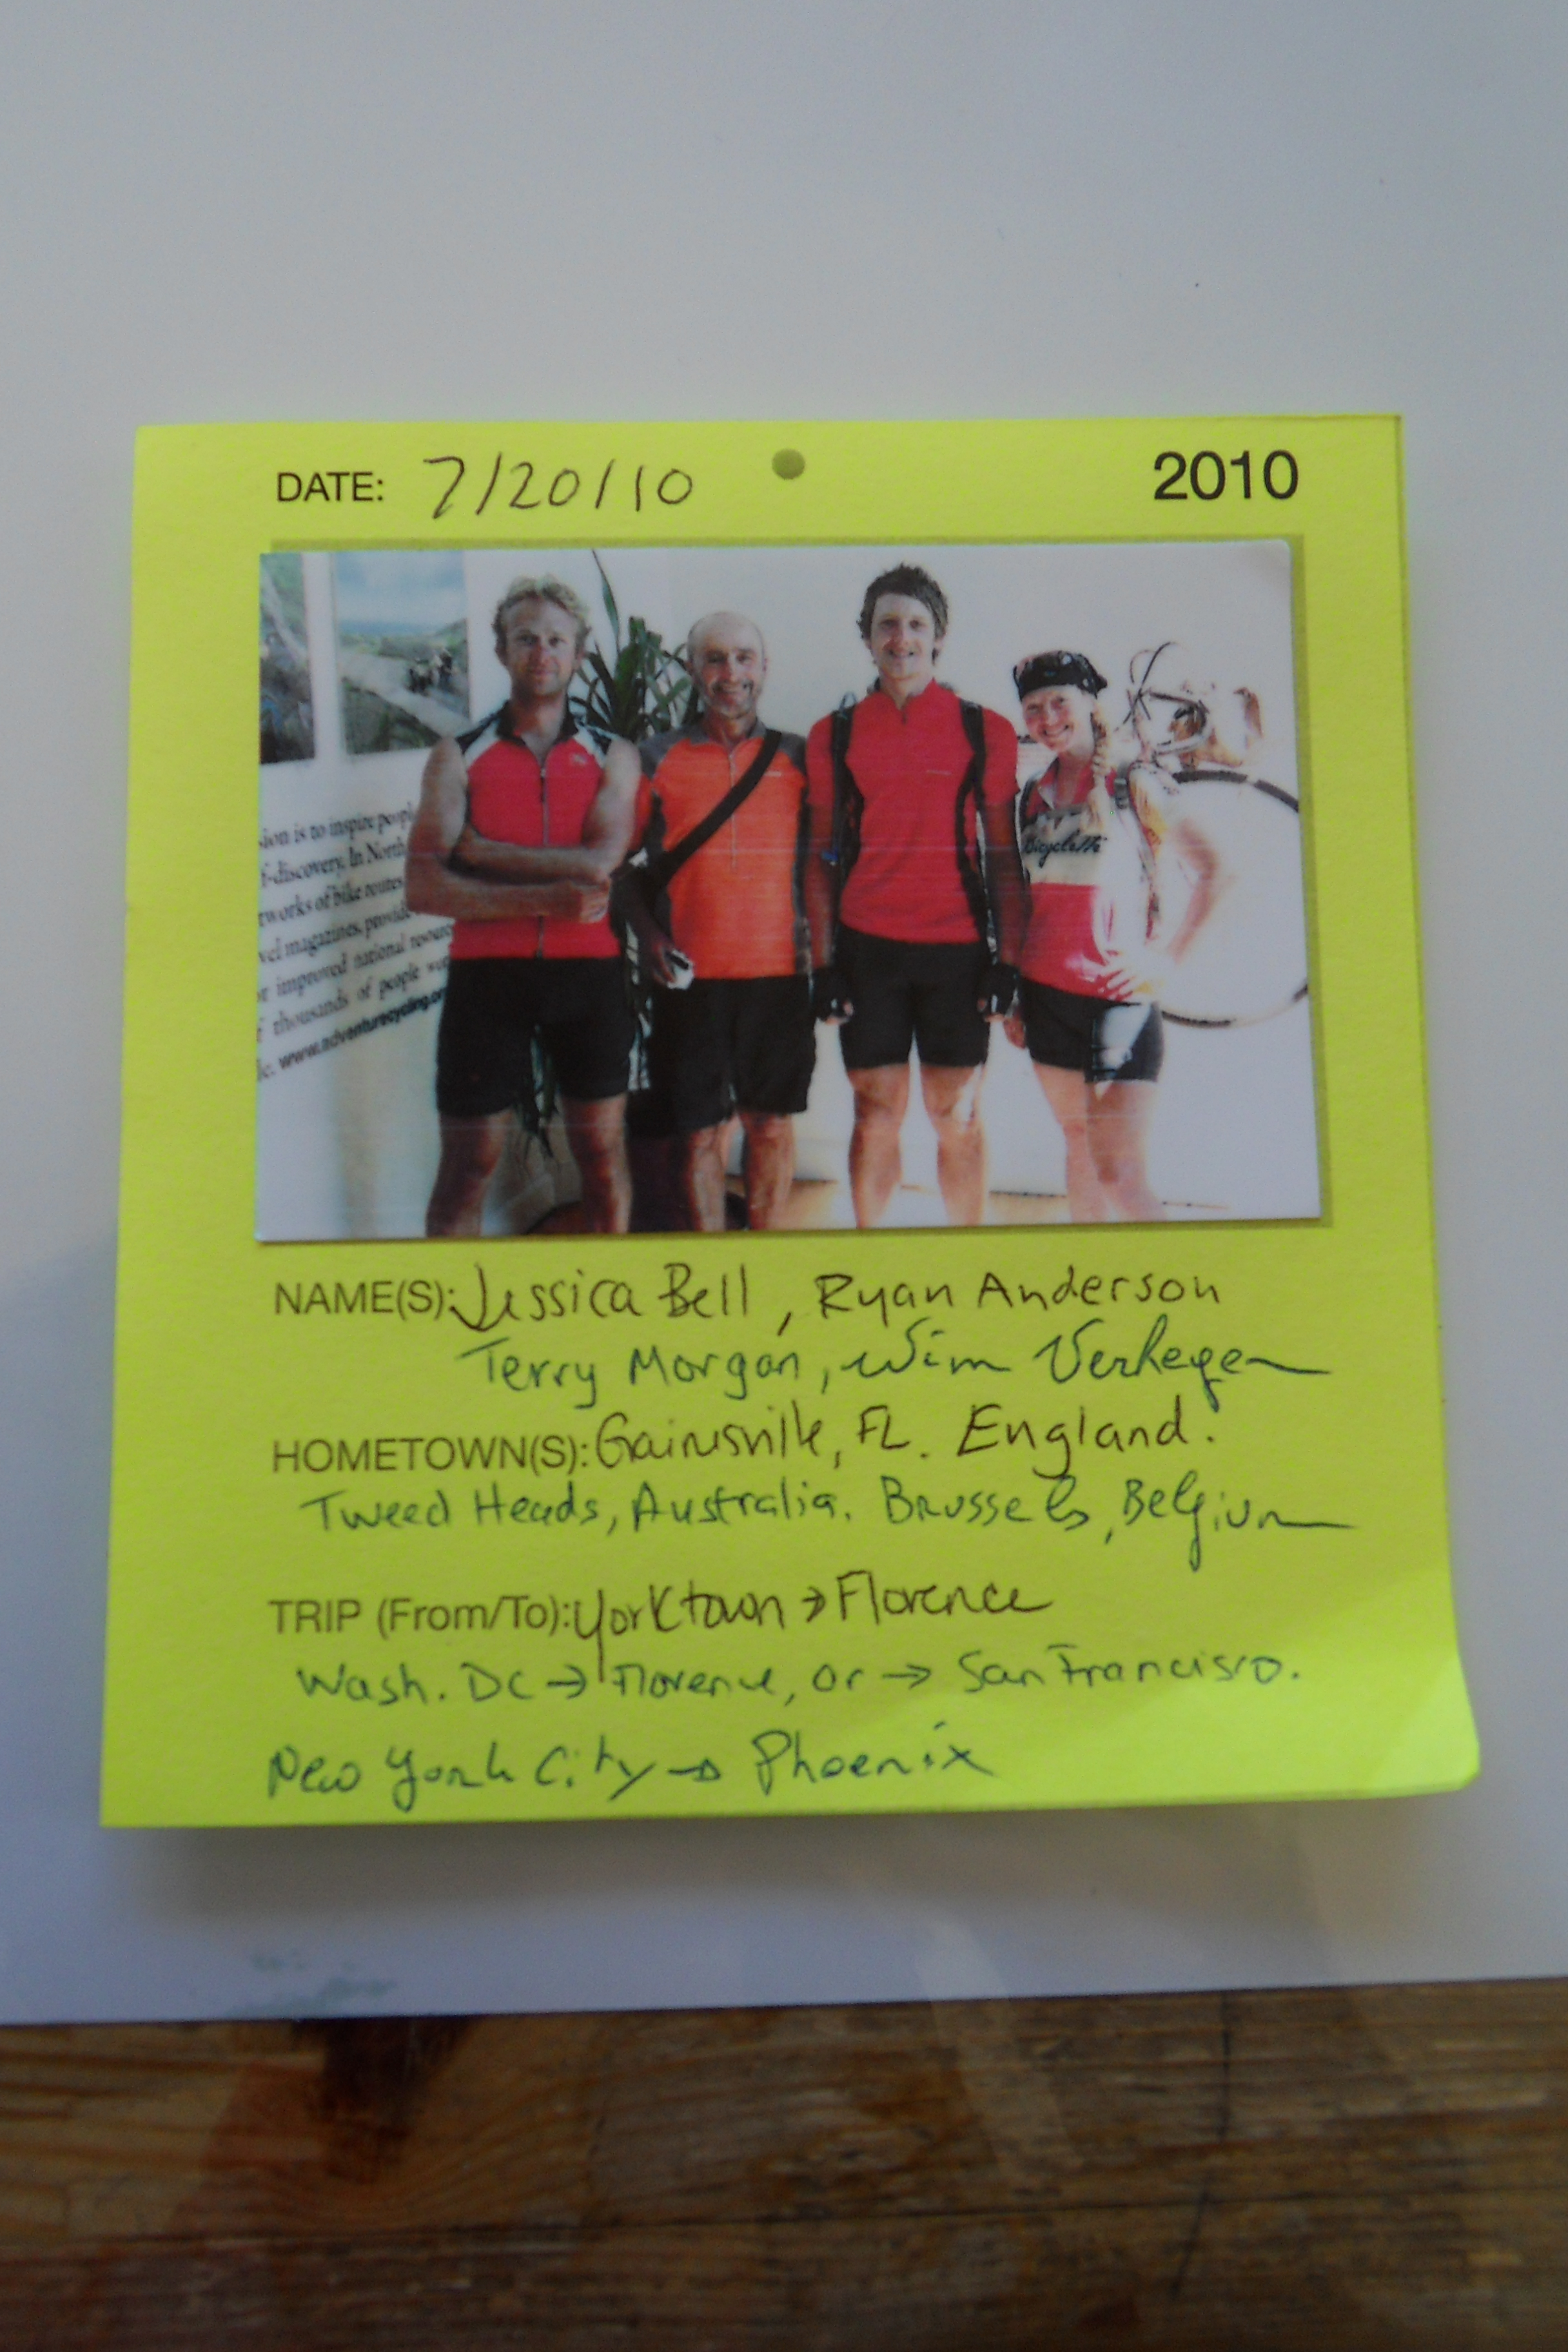 DATE: 7/20/10 2010
sion is to inspire peopl
f-discovery. In North
tworks of bike routes
vel magazines, provide
or improved national resourc
f thousands of people
www.adventurecycling.or
Bicyclette
NAME(S): Jessica Bell, Ryan Anderson
Terry Morgan, Wim Verhegen
HOMETOWN(S): Gainesville, FL. England.
Tweed Heads, Australia. Brussels, Belgium
TRIP (From/To): Yorktown → Florence
Wash. DC → Florence, or → San Francisco.
New York City → Phoenix